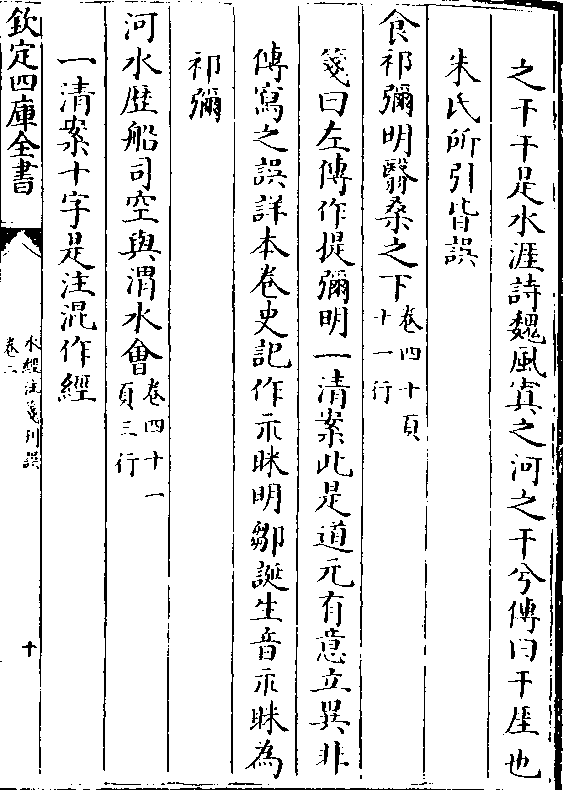 之干干是水涯詩魏風寘之河之干兮傳曰干厓也
朱氏所引皆誤
食祁彌明翳桑之下卷四十頁十一行
箋曰左傳作提彌明一清案此是道元有意立異非
傳寫之誤詳本卷史記作示眯明鄒誕生音示眯為
祁彌
河水歴船司空與渭水會卷四十一頁三行
一清案十字是注混作經
欽定四庫全書
水經注箋刊誤
卷二
十